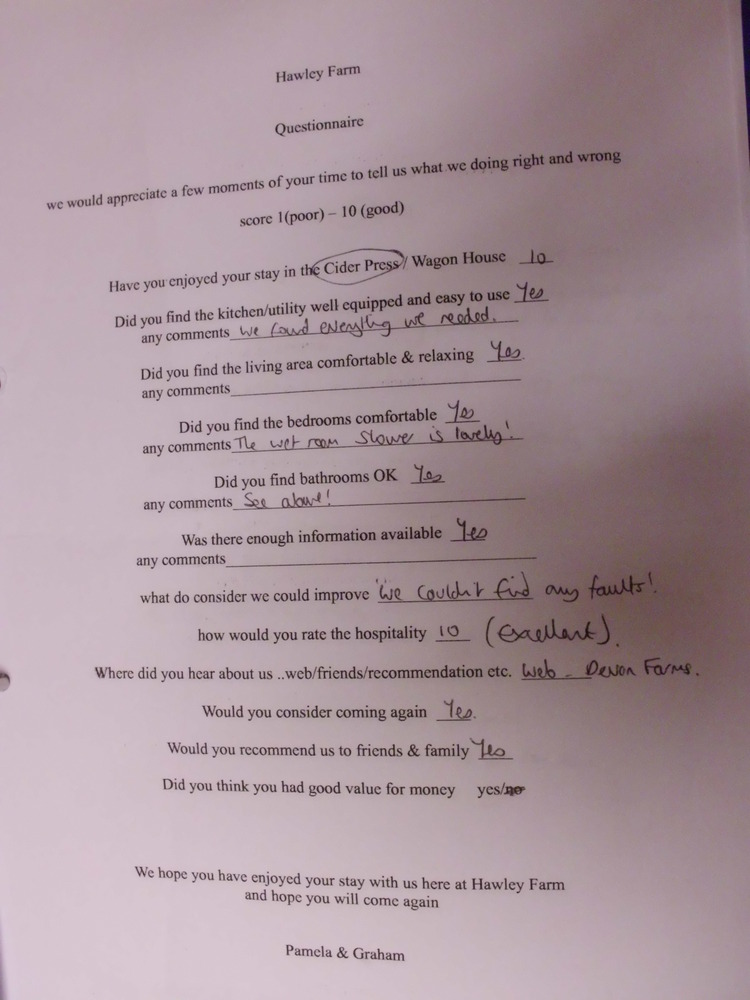 Hawley Farm
Questionnaire
we would appreciate a few moments of your time to tell us what we doing right and wrong
score 1(poor) – 10 (good)
Have you enjoyed your stay in the Cider Press/ Wagon House 10
Did you find the kitchen/utility well equipped and easy to use Yes
any comments We found everything we needed.
Did you find the living area comfortable & relaxing Yes.
any comments
Did you find the bedrooms comfortable Yes
any comments The wet room shower is lovely!
Did you find bathrooms OK Yes
any comments See above!
Was there enough information available Yes
any comments
what do consider we could improve We couldn't find any faults!
how would you rate the hospitality 10 (Excellent).
Where did you hear about us ..web/friends/recommendation etc. Web - Devon Farms.
Would you consider coming again Yes.
Would you recommend us to friends & family Yes
Did you think you had good value for money yes/no
We hope you have enjoyed your stay with us here at Hawley Farm
and hope you will come again
Pamela & Graham